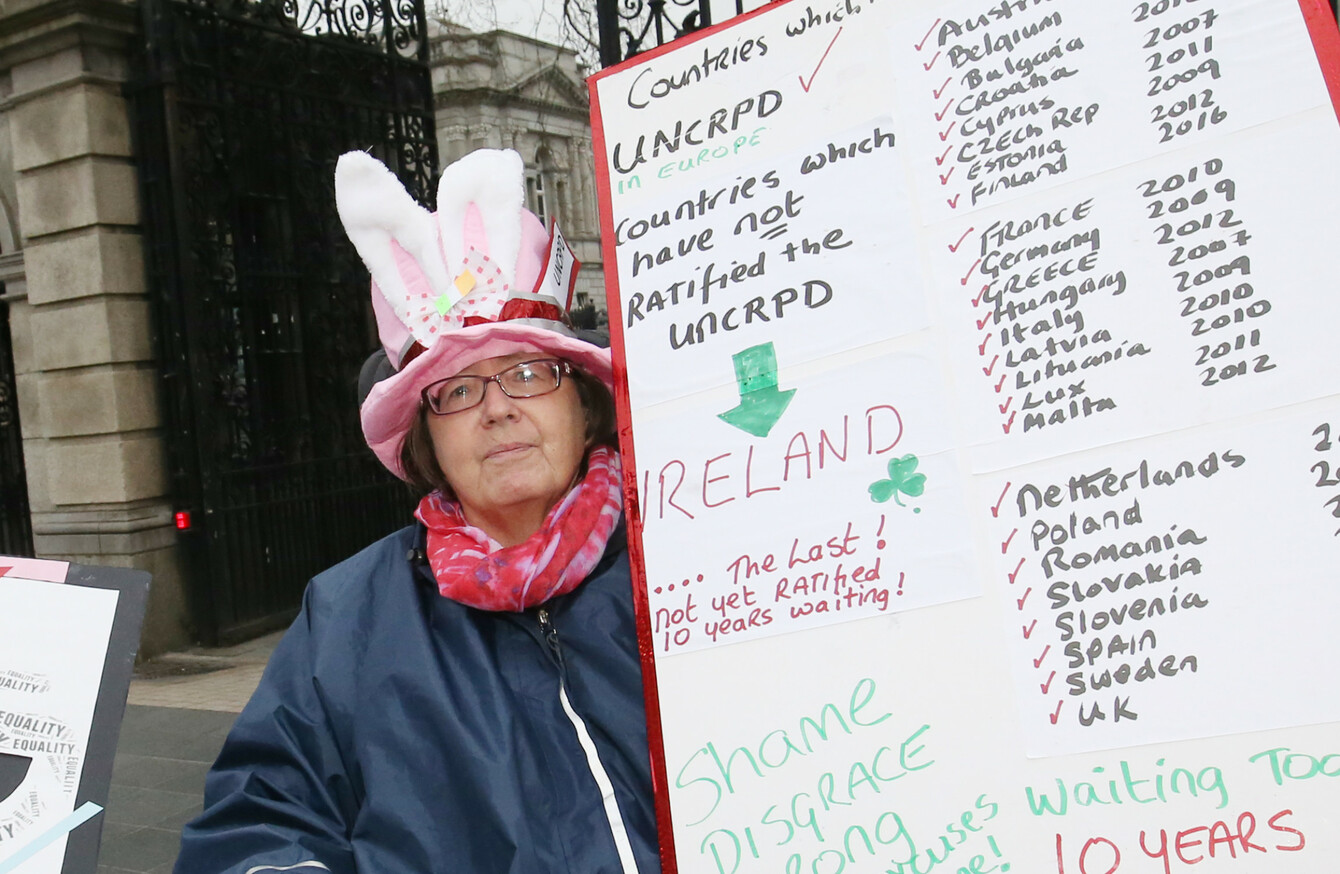 Countries which
UNCRPD
IN EUROPE
Countries which
have not
RATified the
UNCRPD
IRELAND
.... The Last !
not yet RATIFIED
10 years waiting!
Shame
DISGRACE
Long
Belgium
Bulgaria 2007
Croatia 2011
Cyprus 2009
CZECH Rep 2012
Estonia 2016
Finland
FRANCE 2010
Germany 2009
GREECE 2012
Hungary 2007
Italy 2009
Latvia 2010
Lithuania 2010
Lux 2011
Malta 2012
Netherlands
Poland
Romania
Slovakia
Slovenia
SPAIN
Sweden
UK
Waiting Too
10 YEARS
UNCRPD
EQUALITY
EQUALITY
EQUALITY